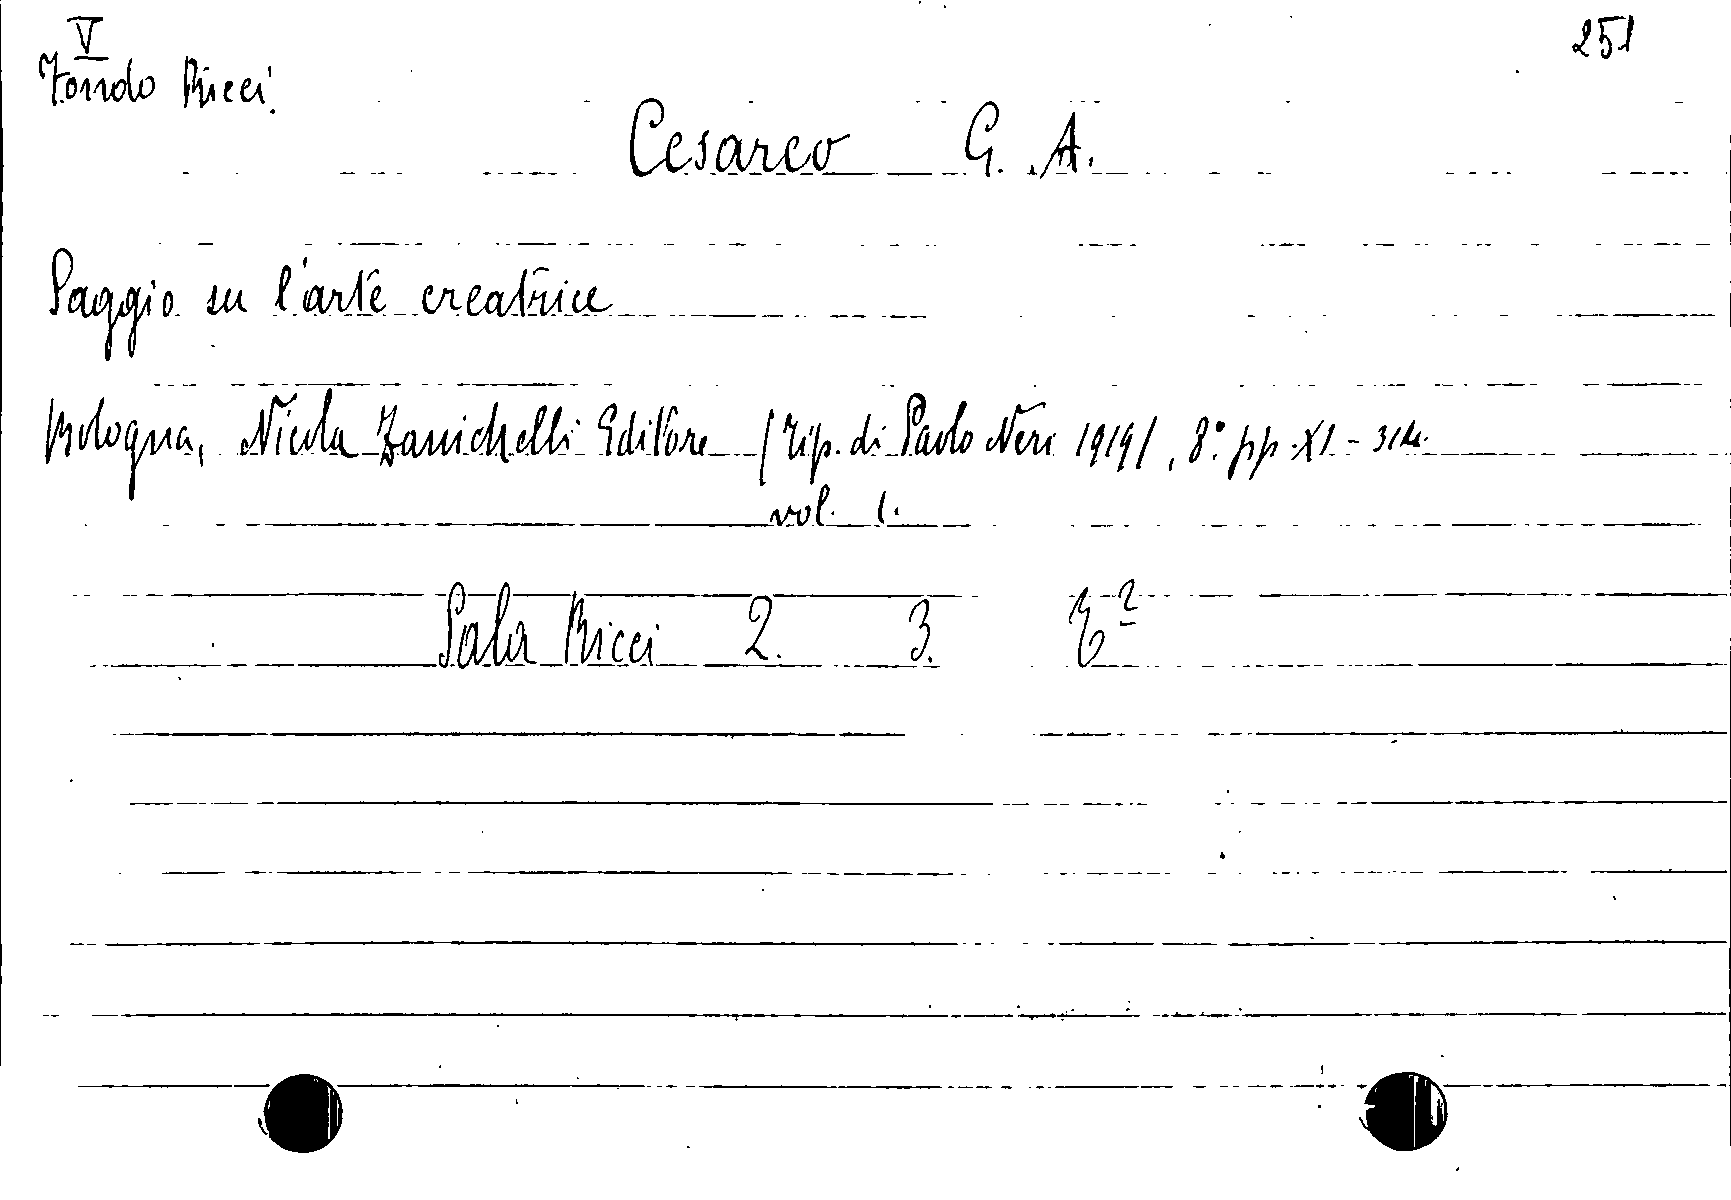 V 251
Fondo Ricci.
Cesareo G. A.
Saggio su l'arte creatrice
Bologna, Nicola Zanichelli Editore (Tip. di Paolo Neri 1919), 8° pp. XI - 314.
vol. 1.
Sala Ricci 2. 3.